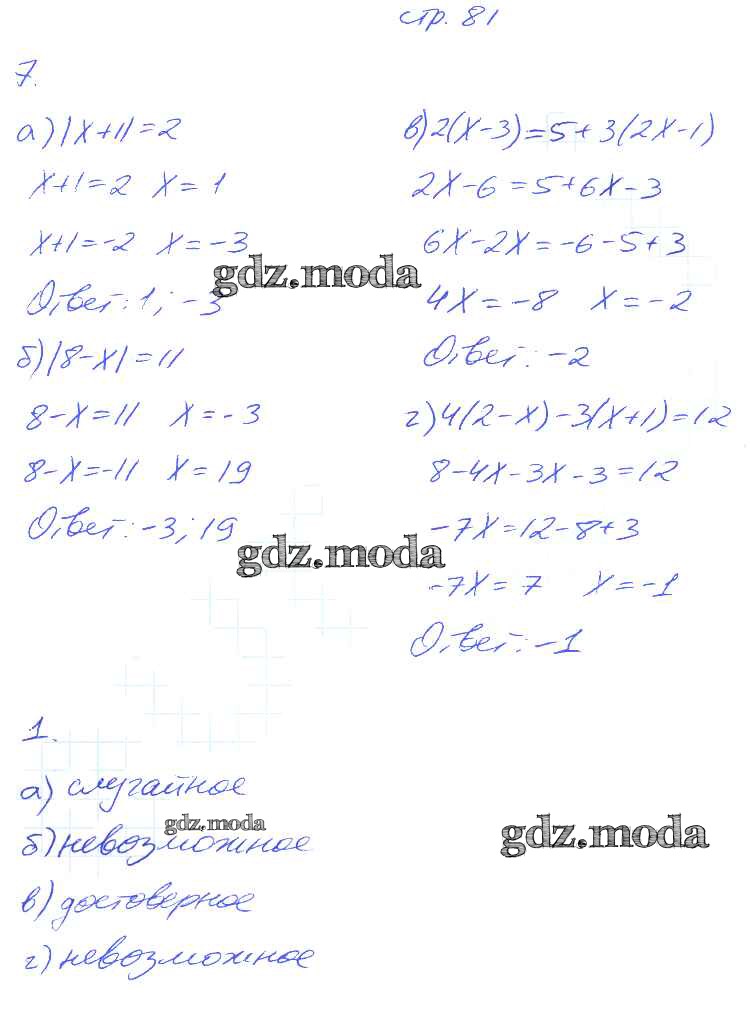 стр. 81
7.
а) |x+1|=2
x+1=2 x=1
x+1=-2 x=-3
Ответ: 1; -3
б) |8-x|=11
8-x=11 x=-3
8-x=-11 x=19
Ответ: -3; 19
в) 2(x-3)=5+3(2x-1)
2x-6=5+6x-3
6x-2x=-6-5+3
4x=-8 x=-2
Ответ: -2
г) 4(2-x)-3(x+1)=12
8-4x-3x-3=12
-7x=12-8+3
-7x=7 x=-1
Ответ: -1
1.
а) случайное
б) невозможное
в) достоверное
г) невозможное
gdz.moda
gdz.moda
gdz.moda
gdz.moda